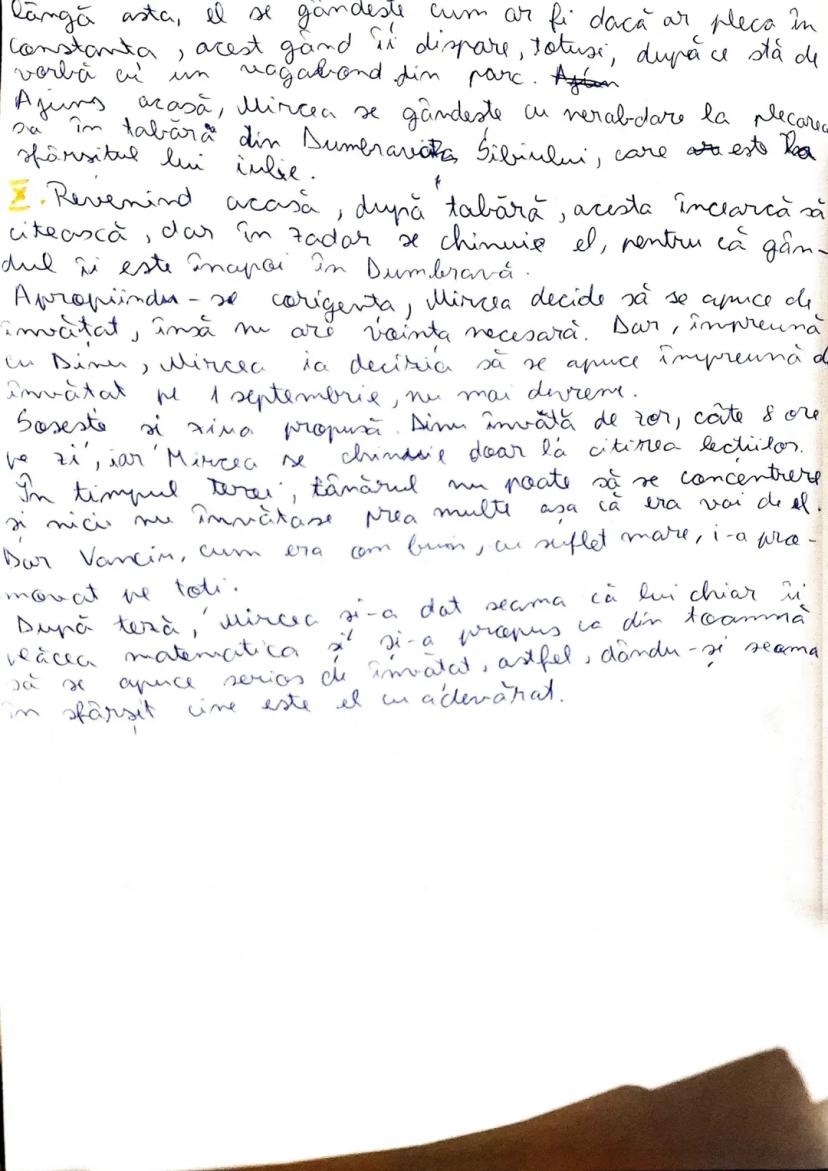 lângă asta, el se gândește cum ar fi dacă ar pleca în
constanta, acest gând îi dispare, totuși, după ce stă de
vorbă cu un vagabond din parc. Ajun
Ajuns acasă, Mircea se gândește cu nerabdare la plecarea
sa în tabără din Dumbrava Sibiului, care este la
sfârșitul lui iulie.
X. Revenind acasă, după tabără, acesta încearcă să
citească, dar în zadar se chinuie el, pentru că gân-
dul îi este înapoi în Dumbravă.
Apropiindu-se corigența, Mircea decide să se apuce de
învățat, însă nu are voința necesară. Dar, împreună
cu Dinu, Mircea ia decizia să se apuce împreună d
învătat pe 1 septembrie, nu mai devreme.
Soseste si ziua propusă. Dinu învăță de zor, câte 8 ore
pe zi, iar Mircea se chinuie doar la citirea lecțiilor.
În timpul tezei, tânărul nu poate să se concentreze
și nici nu învătase prea multe așa că era vai de el.
Dar Vanciu, cum era om bun, cu suflet mare, i-a pro-
movat pe toti.
După teză, Mircea si-a dat seama că lui chiar îi
plăcea matematica și și-a propus ca din toamnă
să se apuce serios de învătat, astfel, dându-și seama
în sfârșit cine este el cu adevărat.